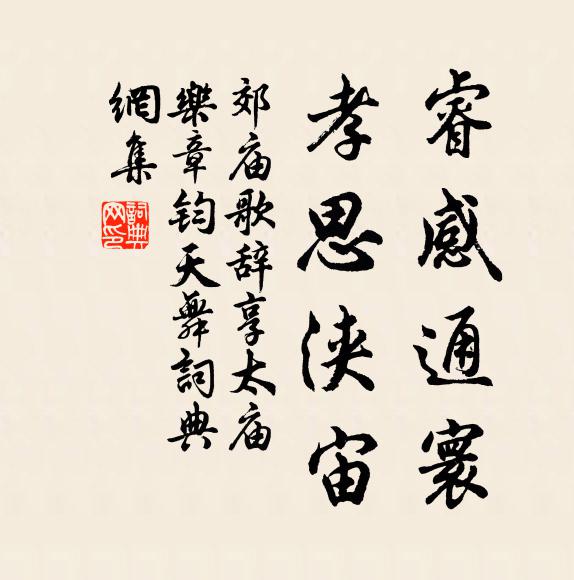 睿感通寰
孝思浹宙
郊庙歌辞享太庙
樂章钧天舞詞典
網集
詞典网印